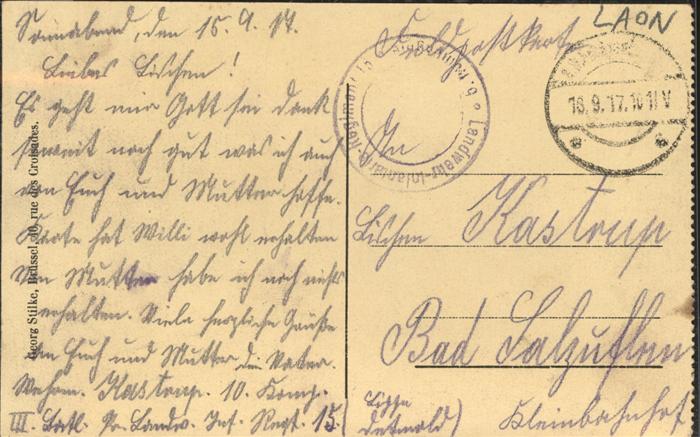 Sonnabend, den 15. 9. 17.
Liebes Lischen!
Es geht mir Gott sei dank
soweit noch gut was ich auch
von Euch und Mutter hoffe.
Karte hat Willi wohl erhalten
von Mutter habe ich noch nichts
erhalten. Viele herzliche Grüße
an Euch und Mutter dein Vater.
Wehrm. Kastrup. 10. Komp.
III. Batl. Pr. Landw. Inf. Regt. 15
Georg Stilke, Brüssel, 10, rue des Croisades.
LAON
Feldpostkarte
16.9.17.
Landwehr-Infanterie-Regiment
An
Lischen Kastrup
Bad Salzuflen
(Lippe
Detmold)
Kleinbahnhof